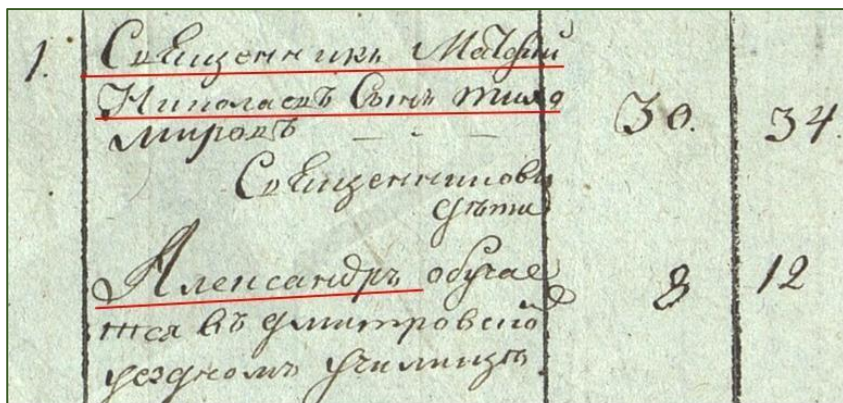 1. Священникъ Матфий
Николаевъ Сынъ Тихо
мировъ — - — 30. 34.
Священниковы
дѣти
Александръ обучае 8 12
тся въ Дмитровско
уездномъ училищѣ